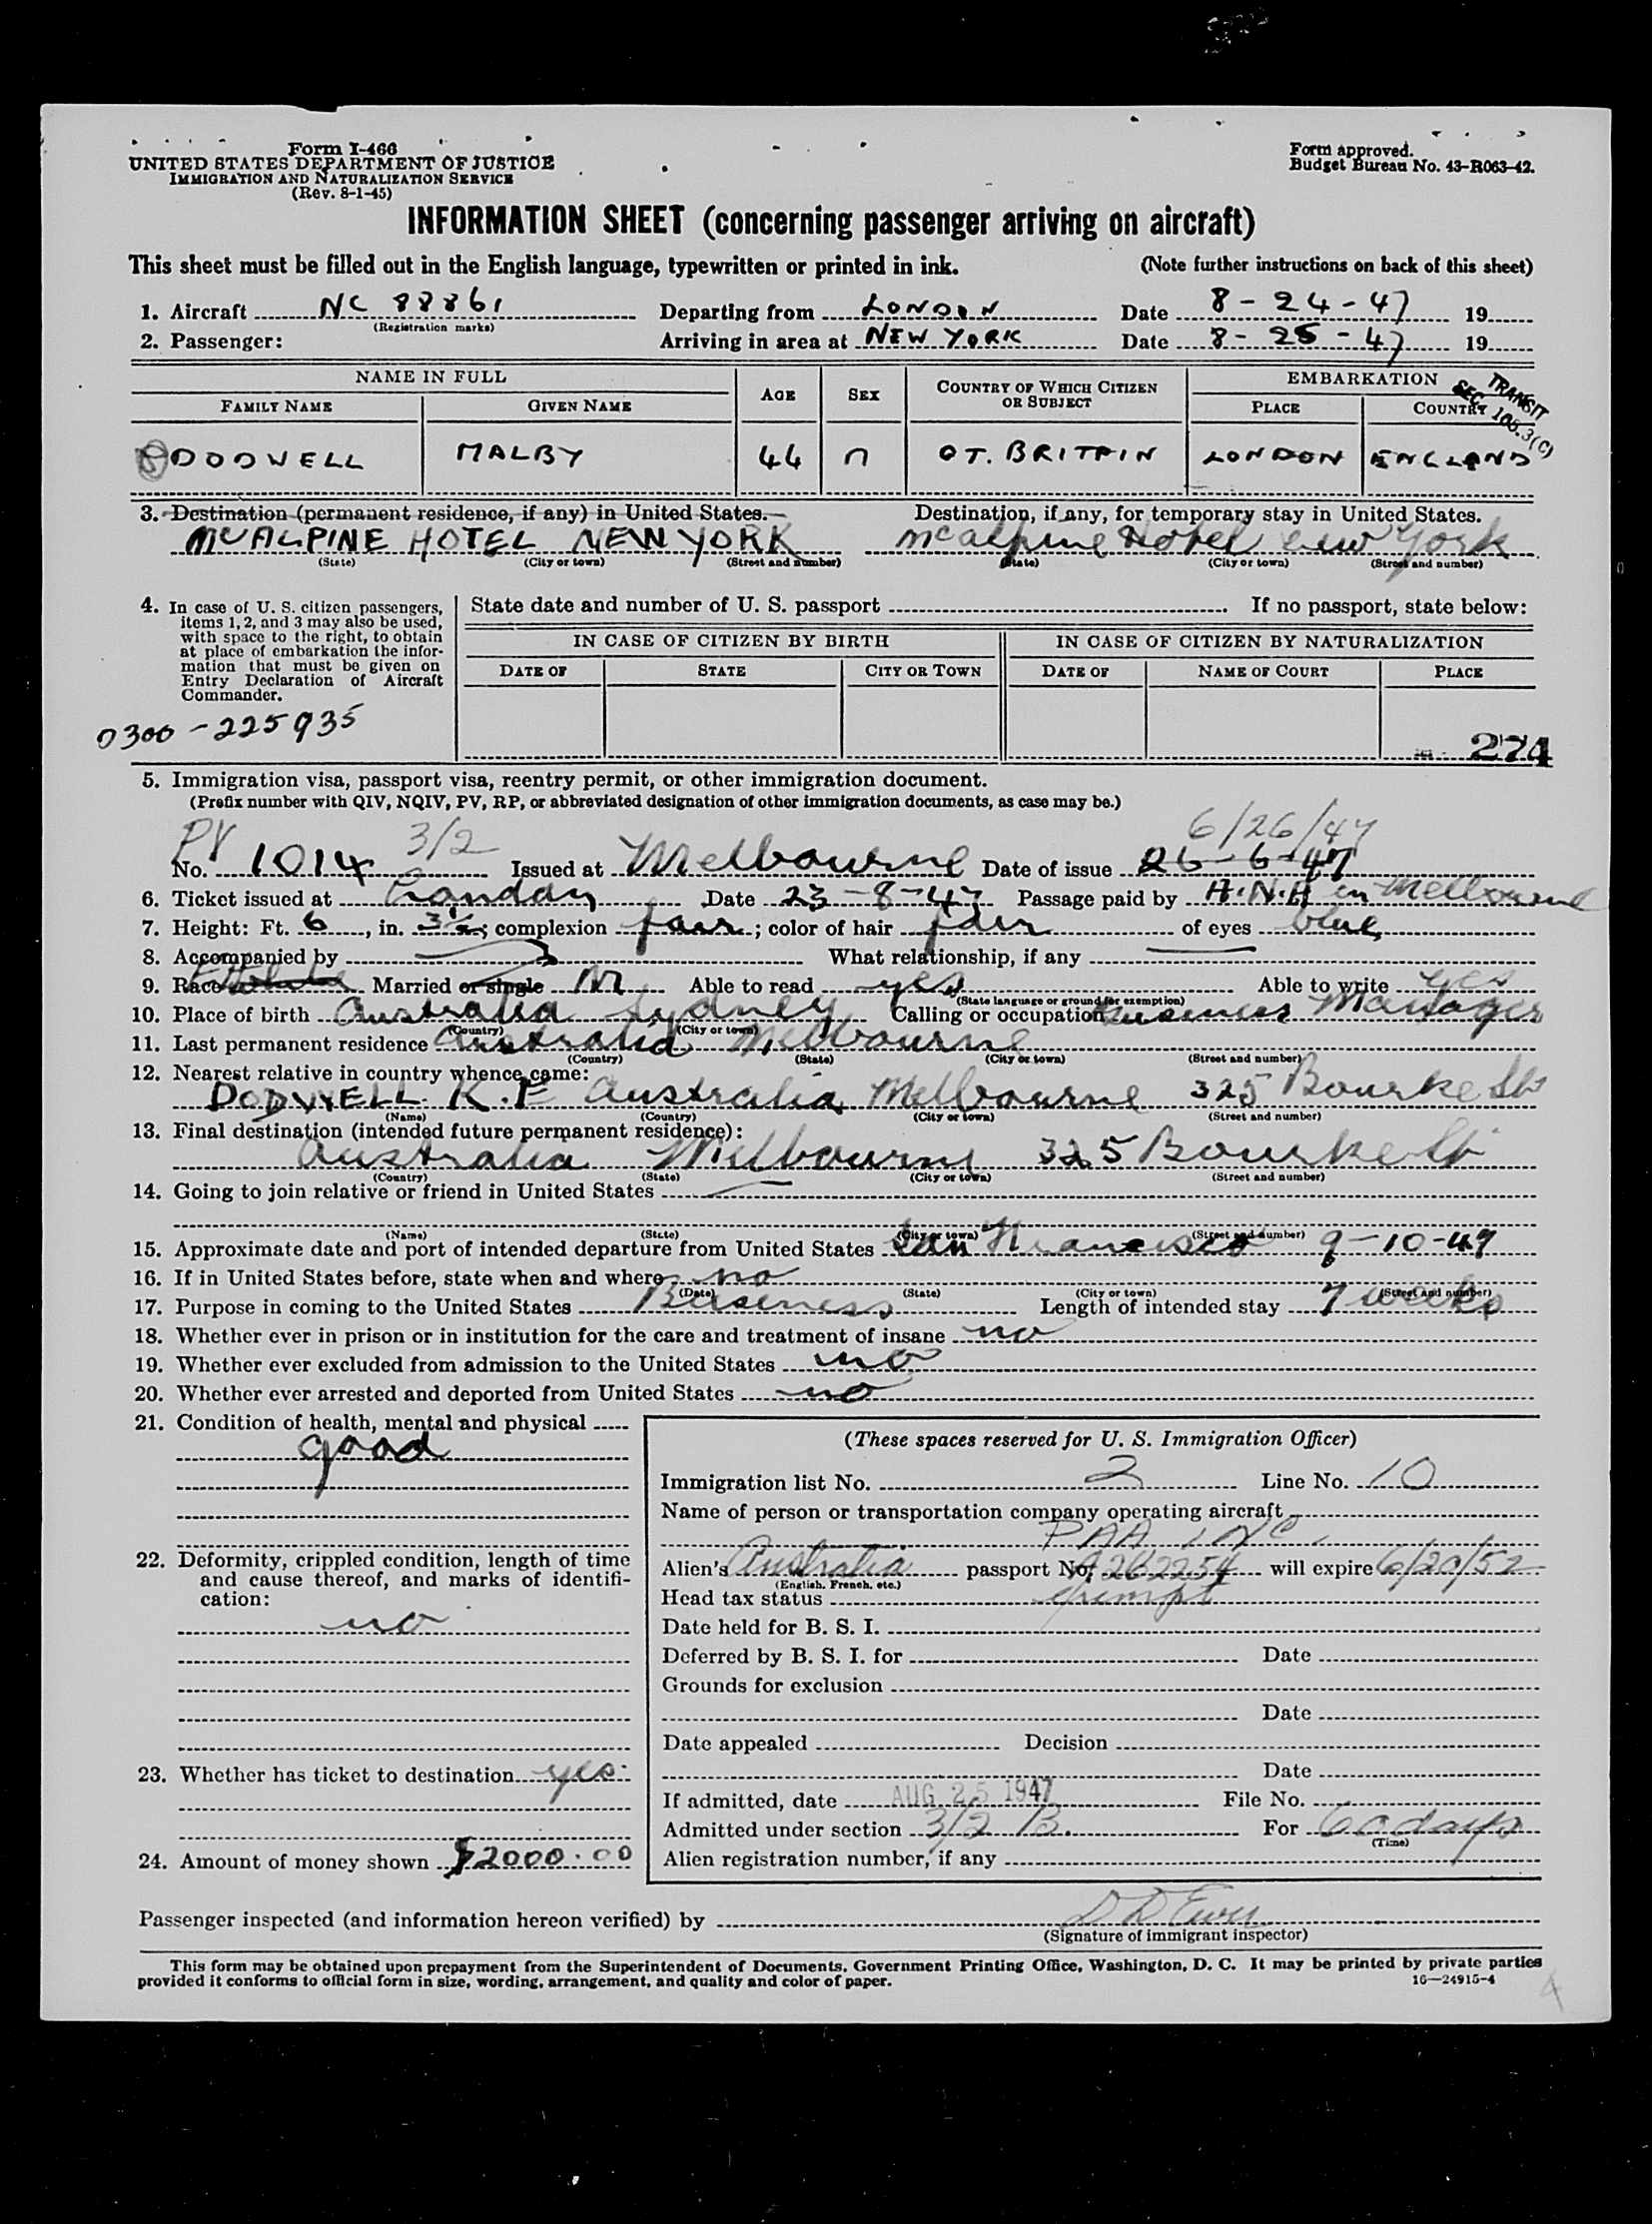 Form I-466
UNITED STATES DEPARTMENT OF JUSTICE
IMMIGRATION AND NATURALIZATION SERVICE
(Rev. 8-1-45)
Form approved.
Budget Bureau No. 43-R063-42.
INFORMATION SHEET (concerning passenger arriving on aircraft)
This sheet must be filled out in the English language, typewritten or printed in ink. (Note further instructions on back of this sheet)
1. Aircraft NC 88861 Departing from LONDON Date 8-24-47 19
(Registration marks)
2. Passenger: Arriving in area at NEW YORK Date 8-25-47 19
NAME IN FULL AGE SEX COUNTRY OF WHICH CITIZEN OR SUBJECT EMBARKATION
FAMILY NAME GIVEN NAME PLACE COUNTRY
TRANSIT
SEC 105.3(C)
DODWELL MALBY 44 M GT. BRITAIN LONDON ENGLAND
3. Destination (permanent residence, if any) in United States. Destination, if any, for temporary stay in United States.
McALPINE HOTEL NEW YORK McAlpine Hotel New York
(State) (City or town) (Street and number) (State) (City or town) (Street and number)
4. In case of U. S. citizen passengers, items 1, 2, and 3 may also be used, with space to the right, to obtain at place of embarkation the information that must be given on Entry Declaration of Aircraft Commander.
State date and number of U. S. passport . If no passport, state below:
IN CASE OF CITIZEN BY BIRTH IN CASE OF CITIZEN BY NATURALIZATION
DATE OF STATE CITY OR TOWN DATE OF NAME OF COURT PLACE
0300-225935
274
5. Immigration visa, passport visa, reentry permit, or other immigration document.
(Prefix number with QIV, NQIV, PV, RP, or abbreviated designation of other immigration documents, as case may be.)
PV 3/2 6/26/47
No. 1014 Issued at Melbourne Date of issue 26-6-47
6. Ticket issued at London Date 23-8-47 Passage paid by A.N.A in Melbourne
7. Height: Ft. 6, in. 3½; complexion fair; color of hair fair of eyes blue
8. Accompanied by What relationship, if any
9. Race Married or single M Able to read yes Able to write yes
(State language or ground for exemption)
10. Place of birth Australia Sydney Calling or occupation Business Manager
(Country) (City or town)
11. Last permanent residence Australia Melbourne
(Country) (State) (City or town) (Street and number)
12. Nearest relative in country whence came:
DODWELL K.F Australia Melbourne 325 Bourke St
(Name) (Country) (City or town) (Street and number)
13. Final destination (intended future permanent residence):
Australia Melbourne 325 Bourke St
(Country) (State) (City or town) (Street and number)
14. Going to join relative or friend in United States
(Name) (State) (City or town) (Street and number)
15. Approximate date and port of intended departure from United States San Francisco 9-10-47
16. If in United States before, state when and where no
(Date) (State) (City or town) (Street and number)
17. Purpose in coming to the United States Business Length of intended stay 7 weeks
18. Whether ever in prison or in institution for the care and treatment of insane no
19. Whether ever excluded from admission to the United States no
20. Whether ever arrested and deported from United States no
21. Condition of health, mental and physical
good
22. Deformity, crippled condition, length of time and cause thereof, and marks of identification:
no
23. Whether has ticket to destination yes
24. Amount of money shown $2000.00
(These spaces reserved for U. S. Immigration Officer)
Immigration list No. 2 Line No. 10
Name of person or transportation company operating aircraft
PAA, INC.
Alien's Australia passport No. A262254 will expire 6/20/52
(English, French, etc.)
Head tax status exempt
Date held for B. S. I.
Deferred by B. S. I. for Date
Grounds for exclusion
Date
Date appealed Decision
Date
If admitted, date AUG 25 1947 File No.
Admitted under section 3/2 B. For 60 days
(Time)
Alien registration number, if any
Passenger inspected (and information hereon verified) by
(Signature of immigrant inspector)
This form may be obtained upon prepayment from the Superintendent of Documents, Government Printing Office, Washington, D. C. It may be printed by private parties
provided it conforms to official form in size, wording, arrangement, and quality and color of paper. 16—24915-4